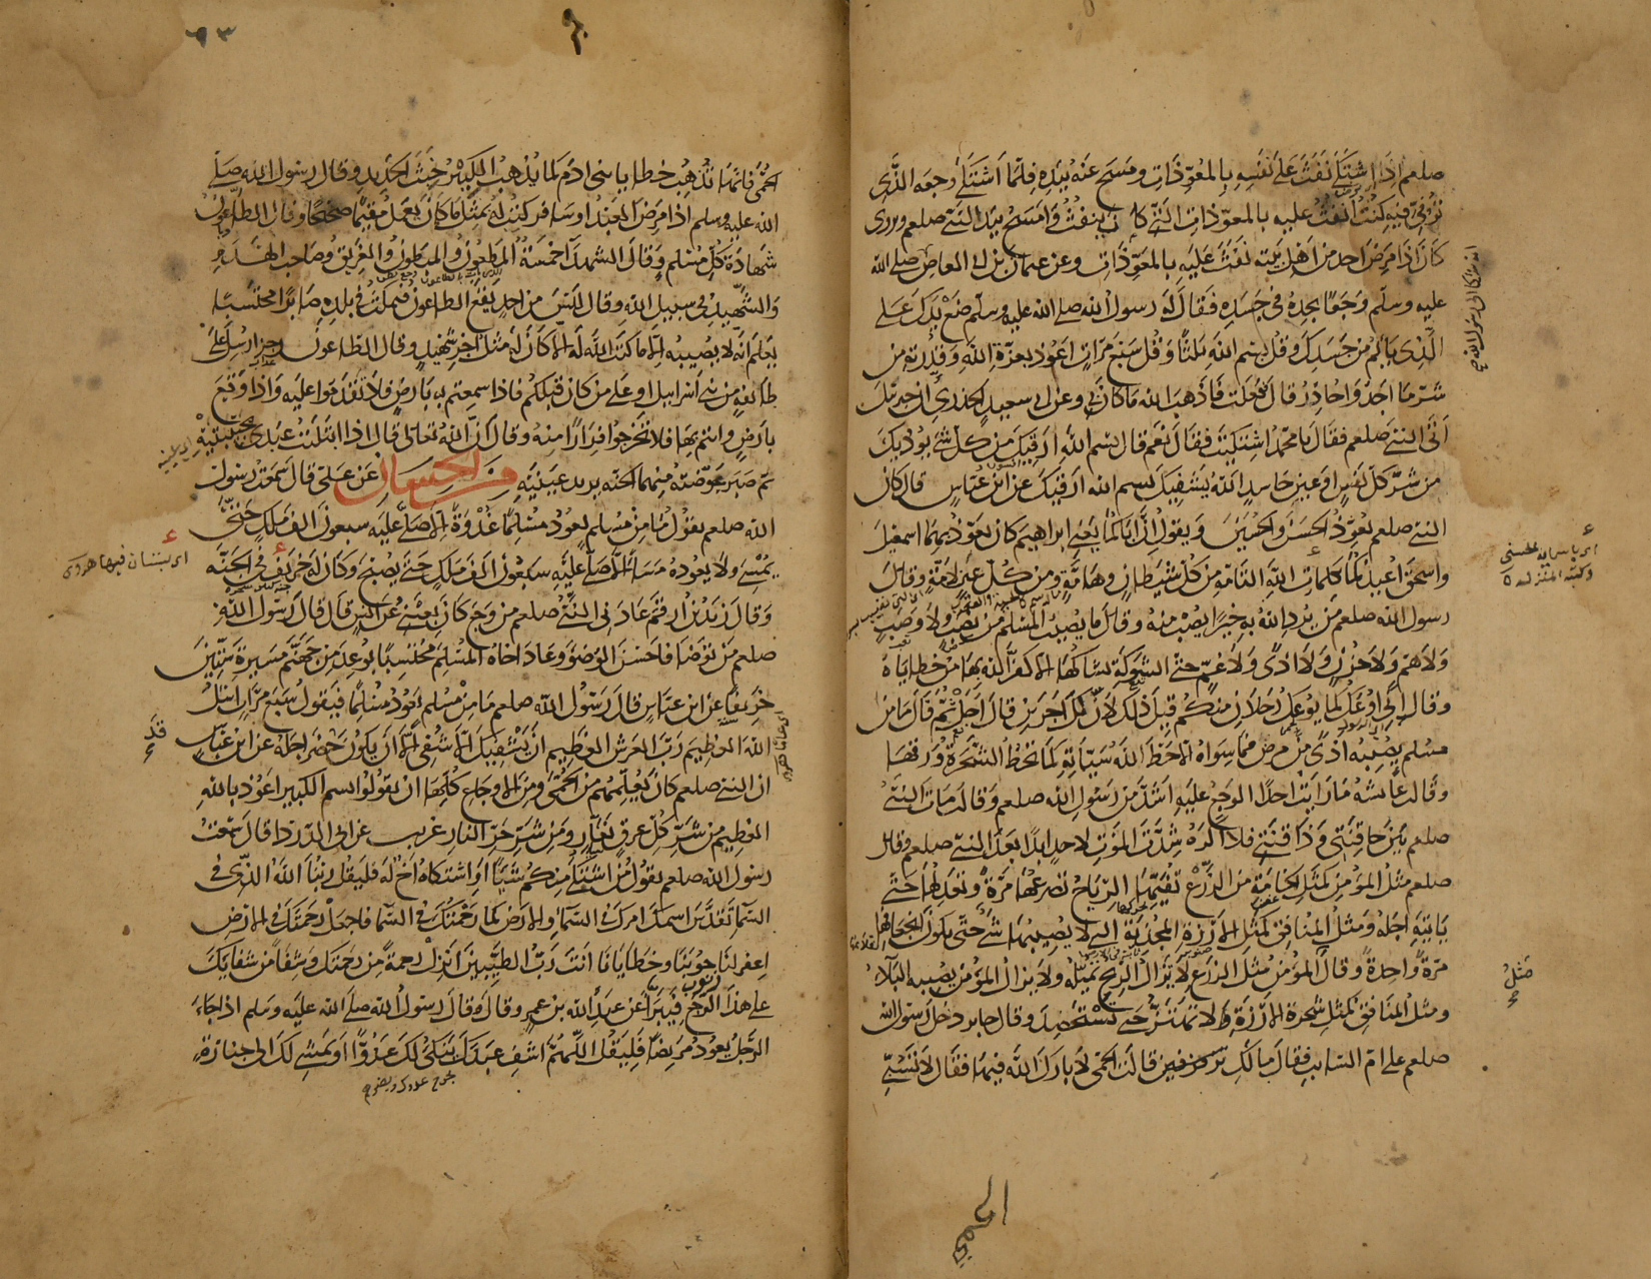 صلعم اذا اشتكى نفث على نفسه بالمعوذات ومسح عنه بيده فلما اشتكى وجعه الذى
توفى فيه كنت انفث عليه بالمعوذات التى كان ينفث وامسح بيد النبى صلعم ويروى
كان اذا مرض احد من اهل بيته نفث عليه بالمعوذات وعن عثمان بن ابى العاص صلى الله
عليه وسلم وجعا يجده فى جسده فقال له رسول الله صلى الله عليه وسلم ضع يدك على
الذى يالم من جسدك وقل بسم الله ثلثا وقل سبع مرات اعوذ بعزة الله وقدرته من
شر ما اجد واحاذر قال ففعلت فاذهب الله ما كان بى وعن ابى سعيد الخدرى ان جبرئيل
اتى النبى صلعم فقال يا محمد اشتكيت فقال نعم قال بسم الله ارقيك من كل شى يوذيك
من شر كل نفس او عين حاسد الله يشفيك بسم الله ارقيك عن ابن عباس قال كان
النبى صلعم يعوذ الحسن والحسين ويقول ان اباكما يعنى ابراهيم كان يعوذ بهما اسمعيل
واسحق اعيذكما بكلمات الله التامة من كل شيطان وهامة ومن كل عين لامة وقال
رسول الله صلعم من يرد الله به خيرا يصب منه وقال ما يصيب المسلم من نصب ولا وصب
ولا هم ولا حزن ولا اذى ولا غم حتى الشوكة يشاكها الا كفر الله بها من خطاياه
وقال انى اوعك كما يوعك رجلان منكم قيل ذلك لان لك اجرين قال اجل ثم قال ما من
مسلم يصيبه اذى من مرض فما سواه الا حط الله سيئاته كما تحط الشجرة ورقها
وقالت عائشة ما رايت احدا الوجع عليه اشد من رسول الله صلعم وقالت مات النبى
صلعم بين حاقنتى وذاقنتى فلا اكره شدة الموت لاحد ابدا بعد النبى صلعم وقال
صلعم مثل المؤمن كمثل الخامة من الزرع تفيئها الرياح تصرعها مرة وتعدلها حتى
ياتيه اجله ومثل المنافق كمثل الارزة المجذية التى لا يصيبها شى حتى يكون انجعافها
مرة واحدة وقال المؤمن مثل الزرع لا تزال الريح تميله ولا يزال المؤمن يصيبه البلاء
ومثل المنافق كمثل شجرة الارزة لا تهتز حتى تستحصد وقال جابر دخل رسول الله
صلعم على ام السائب فقال ما لك تزفزفين قالت الحمى لا بارك الله فيها فقال لا تسبى
مثل
الحمى
٦٣
الحمى فانها تذهب خطايا بنى ادم كما يذهب الكير خبث الحديد وقال رسول الله صلى
الله عليه وسلم اذا مرض العبد او سافر كتب له بمثل ما كان يعمل مقيما صحيحا وقال الطاعون
شهادة كل مسلم وقال الشهداء خمسة المطعون والمبطون والغريق وصاحب الهدم
والشهيد فى سبيل الله وقال ليس من احد يقع الطاعون فيمكث فى بلده صابرا محتسبا
يعلم انه لا يصيبه الا ما كتب الله له الا كان له مثل اجر شهيد وقال الطاعون رجز ارسل على
طائفة من بنى اسرائيل او على من كان قبلكم فاذا سمعتم به بارض فلا تقدموا عليه واذا وقع
بارض وانتم بها فلا تخرجوا فرارا منه وقال ان الله تعالى قال اذا ابتليت عبدى بحبيبتيه
ثم صبر عوضته منهما الجنة يريد عينيه من الحسان عن على قال سمعت رسول
الله صلعم يقول ما من مسلم يعود مسلما غدوة الا صلى عليه سبعون الف ملك حتى
يمسى ولا يعوده مساء الا صلى عليه سبعون الف ملك حتى يصبح وكان له خريف فى الجنة
وقال زيد بن ارقم عادنى النبى صلعم من وجع كان بعينى عن انس قال قال رسول الله
صلعم من توضا فاحسن الوضوء وعاد اخاه المسلم محتسبا بوعد من جهنم مسيرة ستين
خريفا عن ابن عباس قال رسول الله صلعم ما من مسلم يعود مسلما فيقول سبع مرات اسال
الله العظيم رب العرش العظيم ان يشفيك الا شفى الا ان يكون حضر اجله عن ابن عباس
ان النبى صلعم كان يعلمهم من الحمى ومن الاوجاع كلها ان يقولوا بسم الله الكبير اعوذ بالله
العظيم من شر كل عرق نعار ومن شر حر النار غريب عن ابى الدرداء قال سمعت
رسول الله صلعم يقول من اشتكى منكم شيئا او اشتكاه اخ له فليقل ربنا الله الذى فى
السماء تقدس اسمك امرك فى السماء والارض كما رحمتك فى السماء فاجعل رحمتك فى الارض
اغفر لنا حوبنا وخطايانا انت رب الطيبين انزل رحمة من رحمتك وشفاء من شفائك
على هذا الوجع فيبرا عن عبد الله بن عمرو قال وقال رسول الله صلى الله عليه وسلم اذا جاء
الرجل يعود مريضا فليقل اللهم اشف عبدك ينكى لك عدوا او يمشى لك الى جنازة